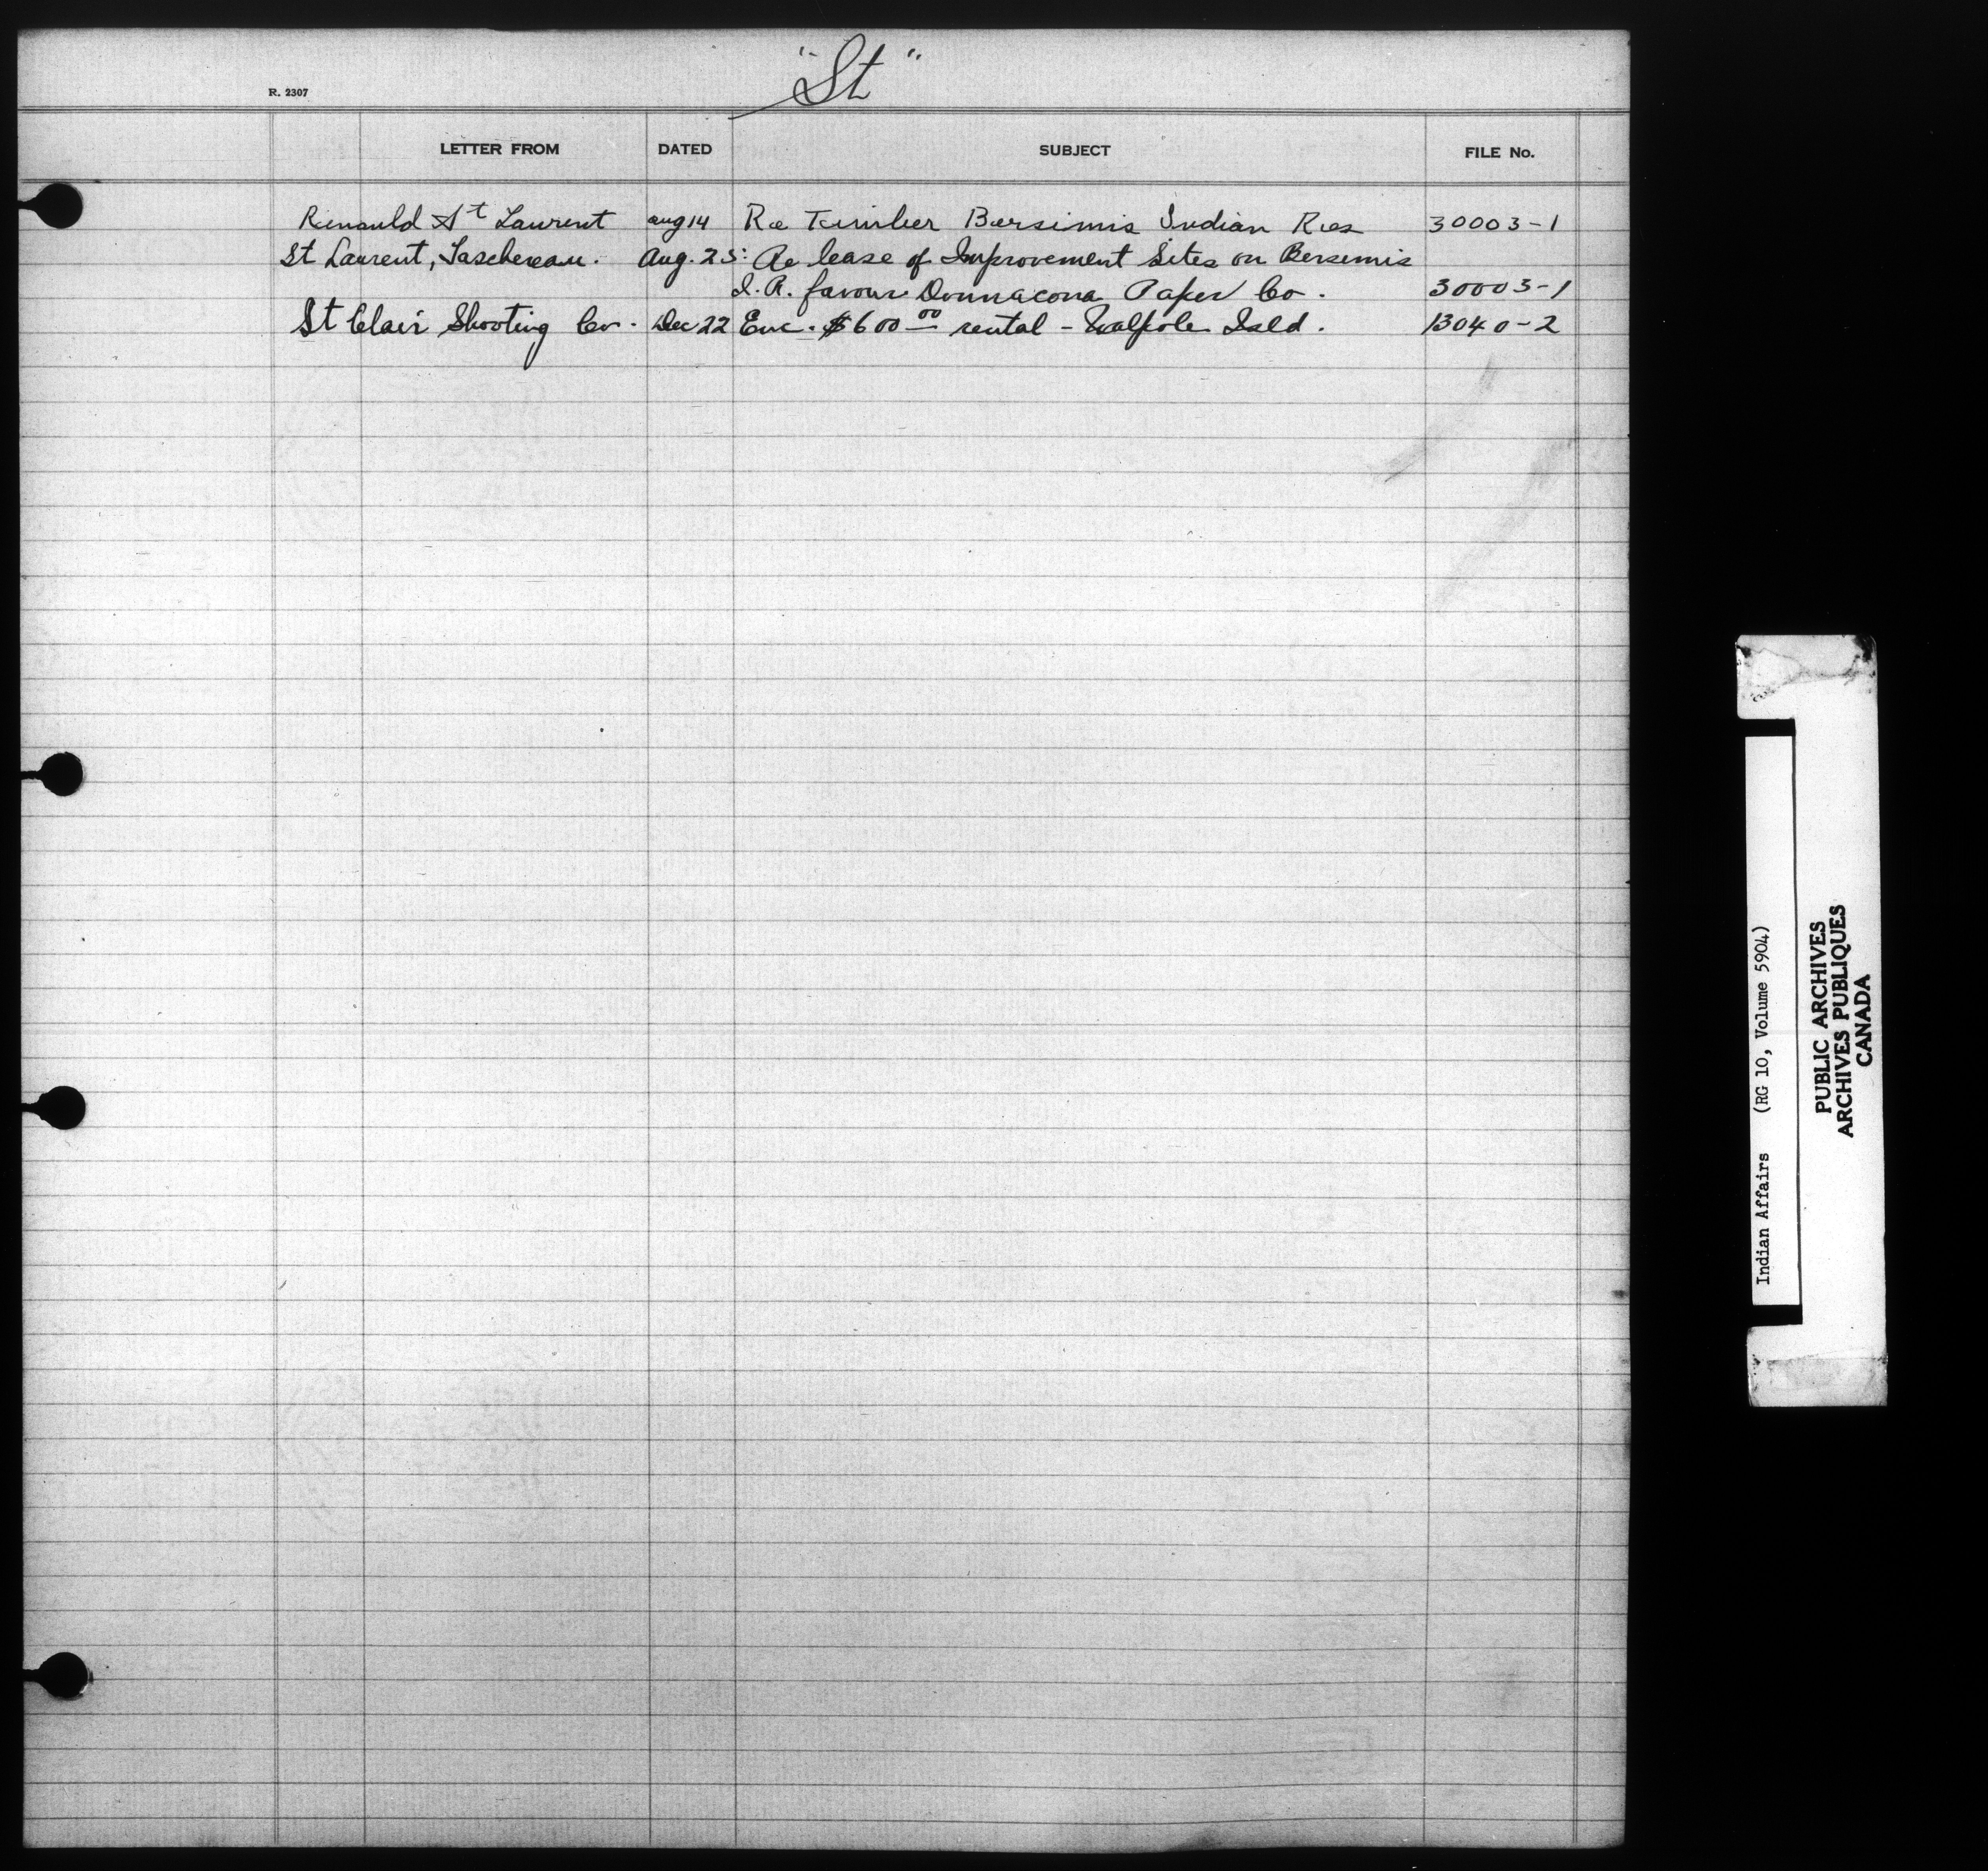 "St"
R. 2307
LETTER FROM DATED SUBJECT FILE No.
Renauld St Laurent aug 14 Re Timber Bersimis Indian Res 30003-1
St Laurent, Taschereau. Aug. 25: Re lease of Improvement Sites on Bersemis
I. R. favour Donnacona Paper Co. 30003-1
St Clair Shooting Co. Dec 22 Enc. $600 00 rental - Walpole Isld. 13040-2
Indian Affairs (RG 10, Volume 5904)
PUBLIC ARCHIVES
ARCHIVES PUBLIQUES
CANADA